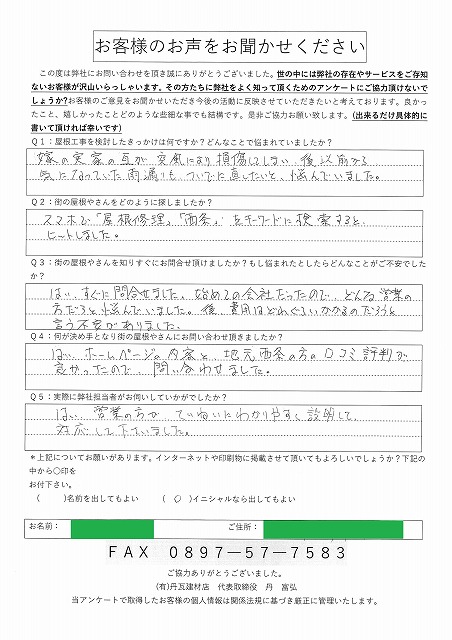 お客様のお声をお聞かせください
この度は弊社にお問い合わせを頂き誠にありがとうございました。世の中には弊社の存在やサービスをご存知
ないお客様が沢山いらっしゃいます。その方たちに弊社をよく知って頂くためのアンケートにご協力頂けないで
しょうか?お客様のご意見をお聞かせいただき今後の活動に反映させていきたいと考えております。良かっ
たこと、嬉しかったことどのような些細な事でも結構です。是非ご協力お願い致します。(出来るだけ具体的に
書いて頂ければ幸いです)
Q1:屋根工事を検討したきっかけは何ですか?どんなことで悩まれていましたか?
嫁の実家の瓦が、突風により損傷してしまい、後以前から
気になっていた雨漏りも、ついでに直したいと、悩んでいました。
Q2:街の屋根やさんをどのように探しましたか?
スマホで「屋根修理」「西条」をキーワードに検索すると、
ヒットしました。
Q3:街の屋根やさんを知りすぐにお問合せ頂けましたか?もし悩まれたとしたらどんなことがご不安でした
か?
はい、すぐに問合せました。始めての会社だったので、どんな営業の
方だろと悩んでいました。後、費用はどれぐらいかかるのだろうと
言う不安がありました。
Q4:何が決め手となり街の屋根やさんにお問い合わせ頂きましたか?
はい、ホームページの内容と、地元西条の方の口コミ評判が
良かったので、問い合わせました。
Q5:実際に弊社担当者がお伺いしていかがでしたか?
はい、営業の方が、ていねいにわかりやすく説明して、
対応して下さいました。
*上記についてお願いがあります。インターネットや印刷物に掲載させて頂いてもよろしいでしょうか?下記の
中から〇印を
お付下さい。
( )名前を出してもよい ( ○ )イニシャルなら出してもよい
お名前: ご住所:
FAX 0897-57-7583
ご協力ありがとうございました。
(有)丹瓦建材店 代表取締役 丹 富弘
当アンケートで取得したお客様の個人情報は関係法規に基づき厳正に管理いたします。